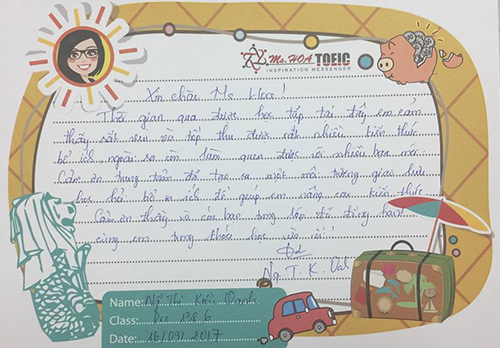 Ms. HOA TOEIC
INSPIRATION MESSENGER
Xin chào Ms Hoa!
Thời gian qua được học tập tại đây em cảm
thấy rất vui và tiếp thu được rất nhiều kiến thức
bổ ích ngoài ra còn làm quen được với nhiều bạn mới.
Cảm ơn trung tâm đã tạo ra một môi trường giao lưu
học hỏi bổ ích để giúp em nâng cao kiến thức
Cảm ơn thầy và các bạn trong lớp đã đồng hành
cùng em trong khóa học vừa rồi!
Ng. T. K. Oanh
Name: Ngô Thị Kiều Oanh
Class: Pre 138.6
Date: 16/09/2017